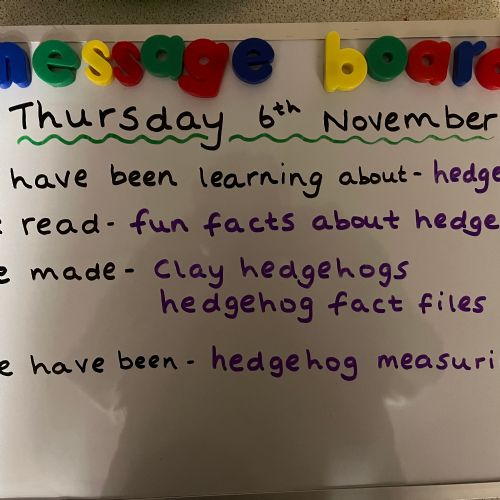 message board
Thursday 6th November
have been learning about- hedge
read- fun facts about hedge
made- Clay hedgehogs
hedgehog fact files
have been- hedgehog measuri